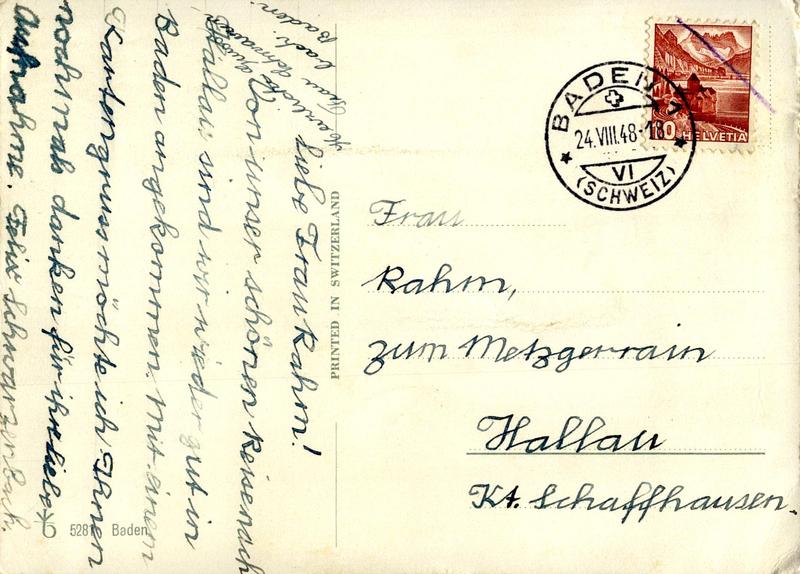 Liebe Frau Rahm!
Von unser schönen Reise nach
Hallau sind wir wieder gut in
Baden angekommen. Mit einem
Kartengruss möchte ich Ihnen
nochmals danken für ihre liebe
Aufnahme. Felix Schwarzenbach.
Herzliche Grüsse
Frau Schwarzen
bach.
Baden.
PRINTED IN SWITZERLAND
BADEN 1
24.VIII.48-18
VI
(SCHWEIZ)
HELVETIA
Frau
Rahm,
zum Metzgerrain
Hallau
Kt. Schaffhausen.
Baden